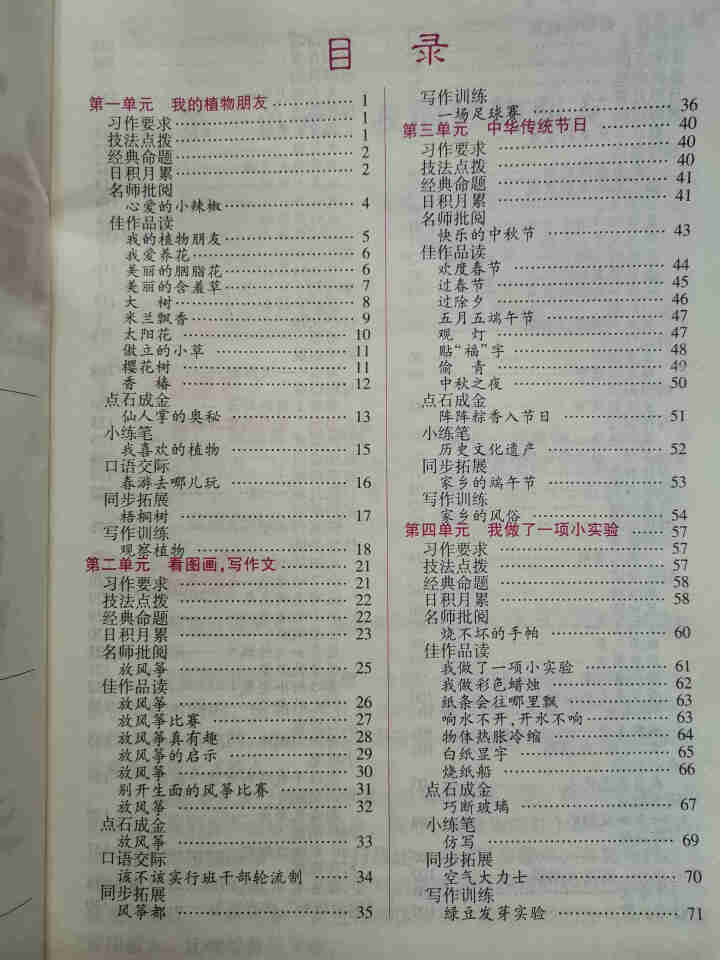 目 录
第一单元 我的植物朋友 …………… 1
习作要求 …………… 1
技法点拨 …………… 1
经典命题 …………… 2
日积月累 …………… 2
名师批阅
心爱的小辣椒 …………… 4
佳作品读
我的植物朋友 …………… 5
我爱养花 …………… 6
美丽的胭脂花 …………… 6
美丽的含羞草 …………… 7
大 树 …………… 8
米兰飘香 …………… 9
太阳花 …………… 10
傲立的小草 …………… 11
樱花树 …………… 11
香 椿 …………… 12
点石成金
仙人掌的奥秘 …………… 13
小练笔
我喜欢的植物 …………… 15
口语交际
春游去哪儿玩 …………… 16
同步拓展
梧桐树 …………… 17
写作训练
观察植物 …………… 18
第二单元 看图画,写作文 …………… 21
习作要求 …………… 21
技法点拨 …………… 22
经典命题 …………… 22
日积月累 …………… 23
名师批阅
放风筝 …………… 25
佳作品读
放风筝 …………… 26
放风筝比赛 …………… 27
放风筝真有趣 …………… 28
放风筝的启示 …………… 29
放风筝 …………… 30
别开生面的风筝比赛 …………… 31
放风筝 …………… 32
点石成金
放风筝 …………… 33
口语交际
该不该实行班干部轮流制 …… 34
同步拓展
风筝都 …………… 35
写作训练
一场足球赛 …………… 36
第三单元 中华传统节日 …………… 40
习作要求 …………… 40
技法点拨 …………… 40
经典命题 …………… 41
日积月累 …………… 41
名师批阅
快乐的中秋节 …………… 43
佳作品读
欢度春节 …………… 44
过春节 …………… 45
过除夕 …………… 46
五月五端午节 …………… 47
观 灯 …………… 47
贴“福”字 …………… 48
偷 青 …………… 49
中秋之夜 …………… 50
点石成金
阵阵粽香入节日 …………… 51
小练笔
历史文化遗产 …………… 52
同步拓展
家乡的端午节 …………… 53
写作训练
家乡的风俗 …………… 54
第四单元 我做了一项小实验 …… 57
习作要求 …………… 57
技法点拨 …………… 57
经典命题 …………… 58
日积月累 …………… 58
名师批阅
烧不坏的手帕 …………… 60
佳作品读
我做了一项小实验 …………… 61
我做彩色蜡烛 …………… 62
纸条会往哪里飘 …………… 63
响水不开,开水不响 …………… 63
物体热胀冷缩 …………… 64
白纸显字 …………… 65
烧纸船 …………… 66
点石成金
巧断玻璃 …………… 67
小练笔
仿写 …………… 69
同步拓展
空气大力士 …………… 70
写作训练
绿豆发芽实验 …………… 71